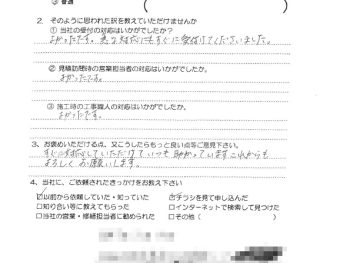 ③ 普通 ( )
2、そのように思われた訳を教えていただけませんか
① 当社の受付の対応はいかがでしたか？
よかったです。急な対応にもすぐに受付けてくださいました。
② 見積訪問時の営業担当者の対応はいかがでしたか。
よかったです。
③ 施工時の工事職人の対応はいかがでしたか。
よかったです。
3、お褒めいただける点、又こうしたらもっと良い点等ご意見下さい。
すぐに対応していただけていつも助かっていますこれからも
よろしくお願いします。
4、当社に、ご依頼されたきっかけをお教え下さい
☑以前から依頼していた・知っていた ☐チラシを見て申し込んだ
☐知り合い等に教えてもらった ☐インターネットで検索して見つけた
☐当社の営業・修繕担当者に勧められた ☐その他（